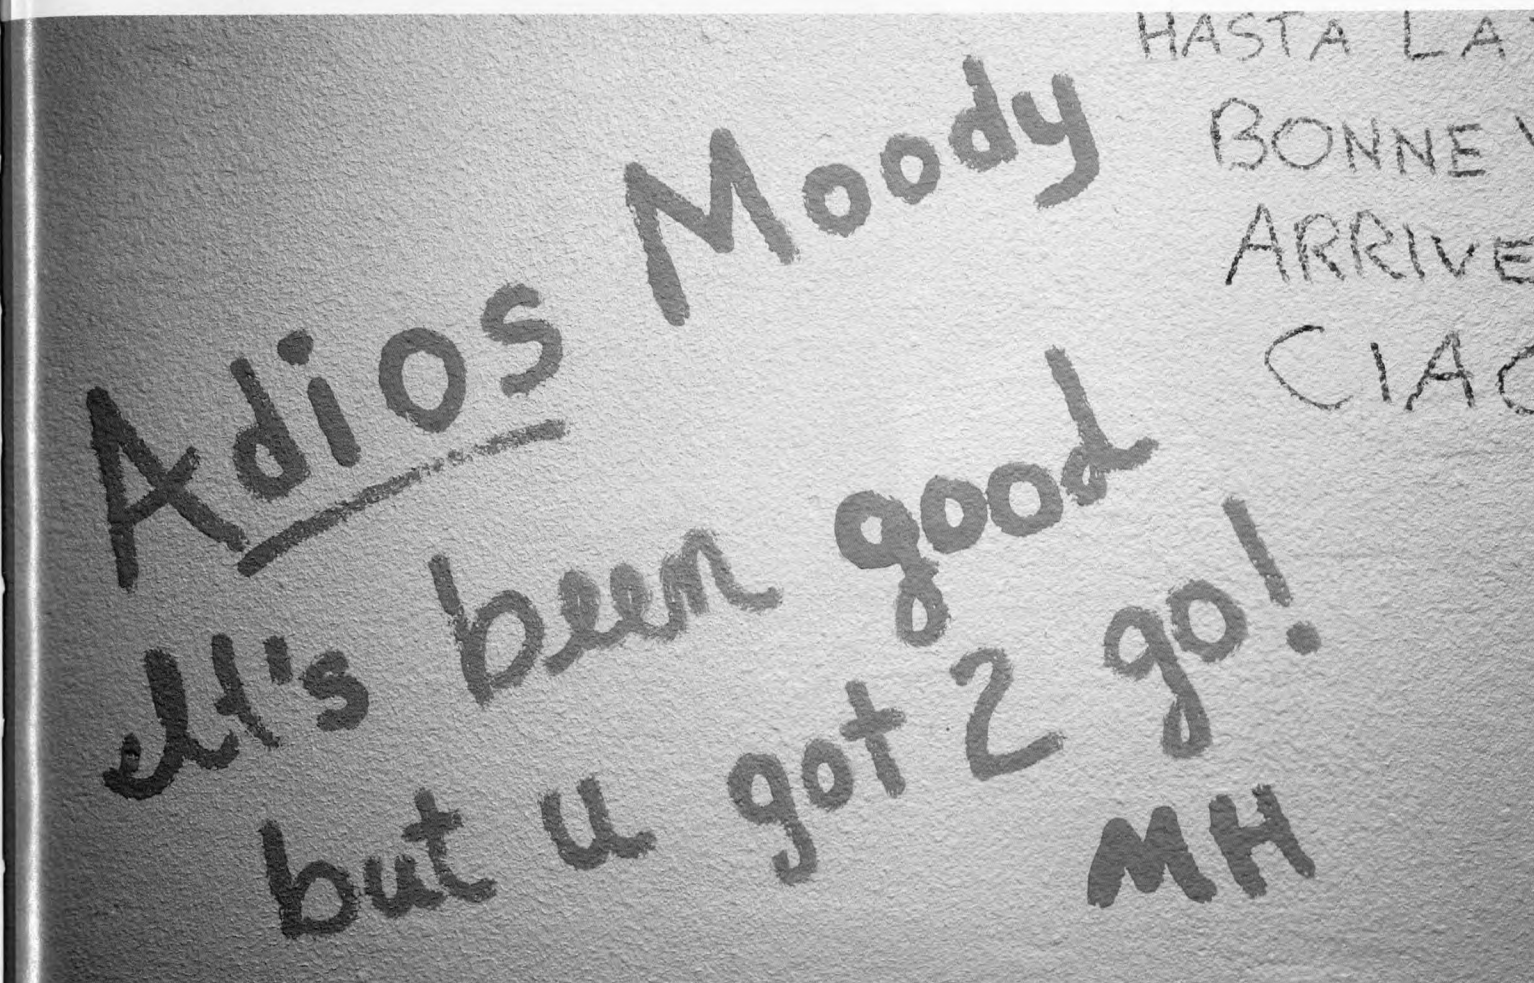 Adios Moody
It's been good
but u got 2 go!
MH
HASTA LA
BONNE
ARRIVE
CIAO